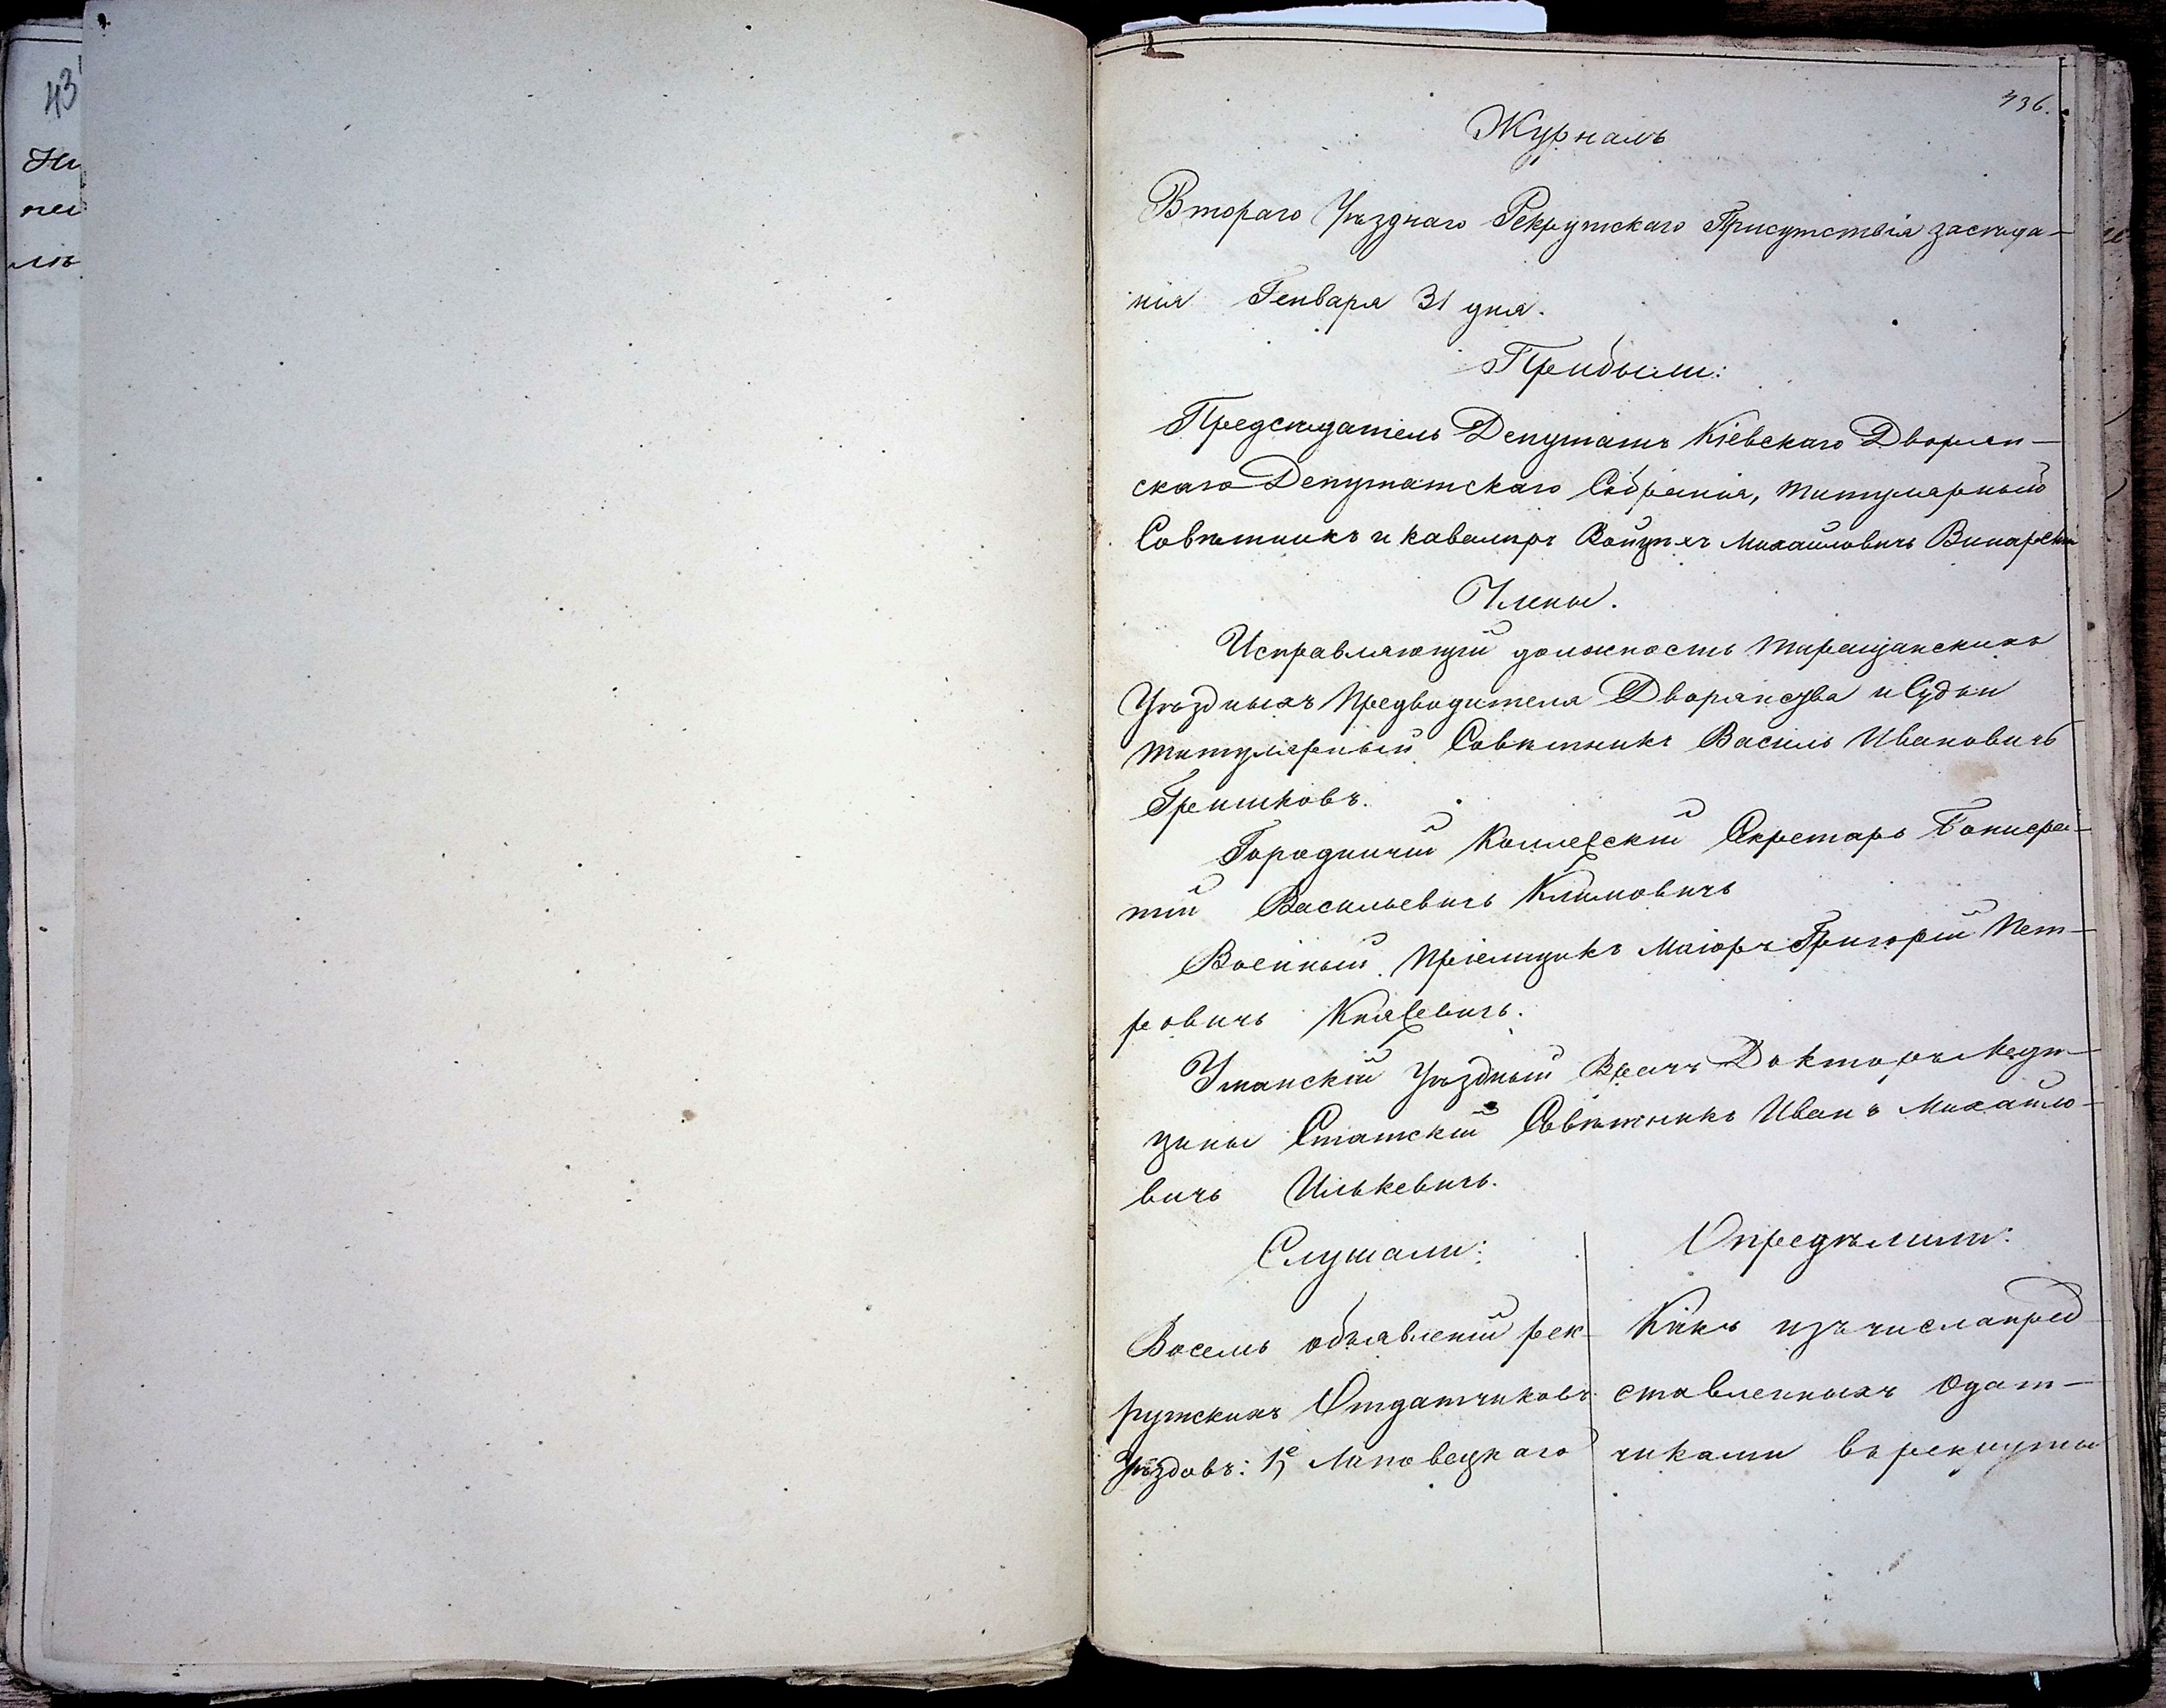 43
436.
Журналъ
Втораго Уѣзднаго Рекрутскаго Присутствія засѣда-
нія Генваря 31 дня.
Прибыли:
Предсѣдатель Депутатъ Кіевскаго Дворян-
скаго Депутатскаго Собранія, титулярный
Совѣтникъ и кавалеръ Войцѣхъ Михайловичъ Винарскій
Члены.
Исправляющій должность Таращанскихъ
Уѣздныхъ Предводителя Дворянства и Судьи
титулярный Совѣтникъ Василь Ивановичъ
Гришковъ.
Городничій Коллежскій Секретарь Бонифа-
тій Васильевичъ Климовичъ
Военный Пріемщикъ Маіоръ Григорій Пет-
ровичъ Княжевичъ.
Уманскій Уѣздный Врачъ Докторъ Меди-
цины Статскій Совѣтникъ Иванъ Михайло-
вичъ Илькевичъ.
Слушали:
Восемь объявленій рек-
рутскихъ Отдатчиковъ
Уѣздовъ: 1е Липовецкаго
Опредѣлили:
Какъ изъ числа пред-
ставленныхъ Одат-
чиками въ рекруты